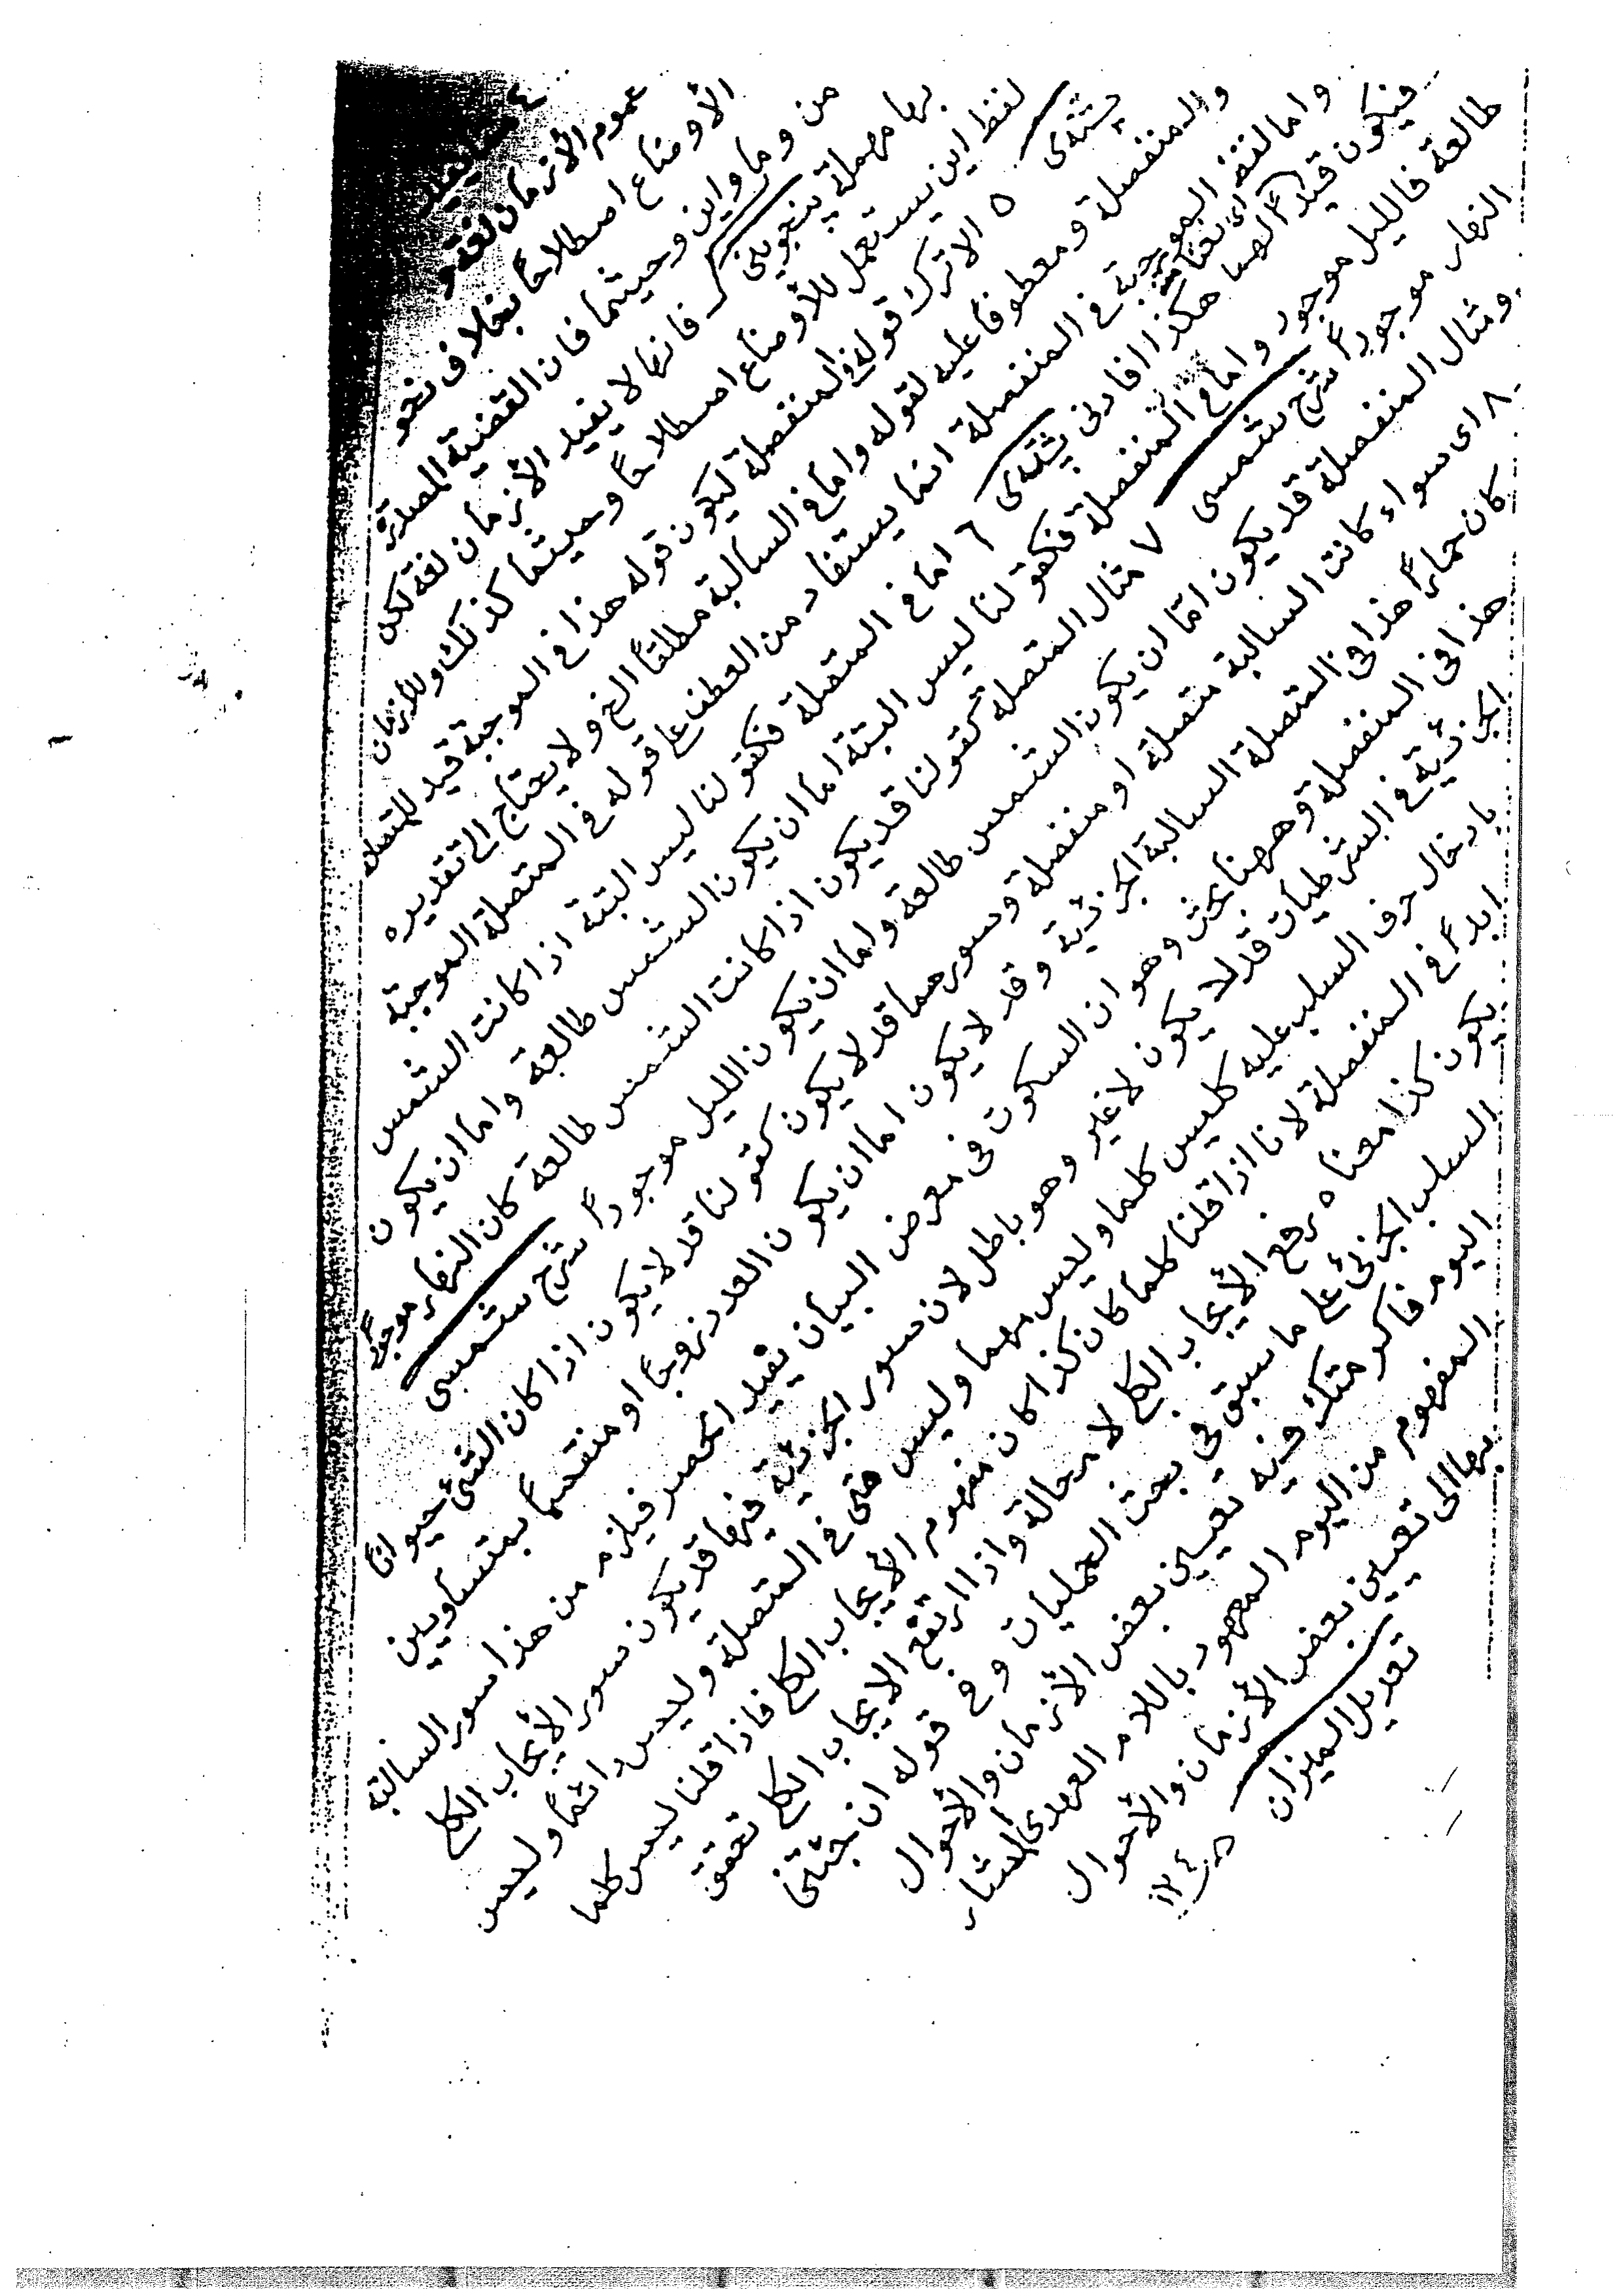 ٤ مما يفيد
عموم الأزمان لغة و
الأوضاع اصطلاحاً بخلاف نحو
من وما واين وحيثما فان القضية المصدرة
بها مهملة ينغوينى فانها لا يفيد الأزمان لغة لكن
لفظ اين يستعمل للأوضاع اصطلاحاً وحيثما كذلك وللأزمان
پيشتدى ٥ الا ترك قوله والمنفصلة ليكون قوله هذا في الموجبة قيد للمتصلة
والمنفصلة ومعطوفاً عليه لقوله واما في السالبة مطلقاً الخ ولا يحتاج الى تقديره
واما لفظ الموجبة في المنفصلة انما يستفاد من العطف على قوله في المتصلة الموجبة
فيكون قيداً لهما هكذا افادنى پيشتدى ٦ اما في المتصلة فكقولنا ليس البتة اذا كانت الشمس
طالعة فالليل موجود واما في المنفصلة فكقولنا ليس البتة اما ان يكون الشمس طالعة واما ان يكون
النهار موجوداً شرح شمسى ٧ مثال المتصلة كقولنا قد يكون اذا كانت الشمس طالعة كان النهار موجوداً
ومثال المنفصلة قد يكون امّا ان يكون الشمس طالعة واما ان يكون الليل موجوداً شرح شمسى
٨ اى سواء كانت السالبة متصلة او منفصلة وسورهما قد لا يكون كقولنا قد لا يكون اذا كان الشئ حيواناً
كان حماراً هذا فى المتصلة السالبة الجزئية وقد لا يكون اما ان يكون العدد زوجاً او منقسماً بمتساويين
هذا فى المنفصلة وههنا بحث وهو ان السكوت فى معرض البيان يفيد الحصر فيلزم من هذا سور السالبة
الجزئية في الشرطيات قد لا يكون لا غير وهو باطل لان سور الجزئية فيها قد يكون سور الأيجاب الكلي
بادخال حرف السلب عليه كليس كلما وليس مهما وليس متى في المتصلة وليس دائماً وليس
ابداً في المنفصلة لانا اذا قلنا كلما كان كذا كان مفهوم الأيجاب الكلي فاذا قلنا ليس كلما
يكون كذا معناه رفع الأيجاب الكلي لا محالة واذا ارتفع الايجاب الكلي تحقق
السلب الجزئى على ما سبق في بحث الحمليات و في قوله ان جئتنى
اليوم فاكرمتك فيه تعيين بعض الأزمان والأحوال
المفهوم من اليوم المعهود باللام العهدى المشار
بها الى تعيين بعض الأزمان والأحوال
تعديل الميزان